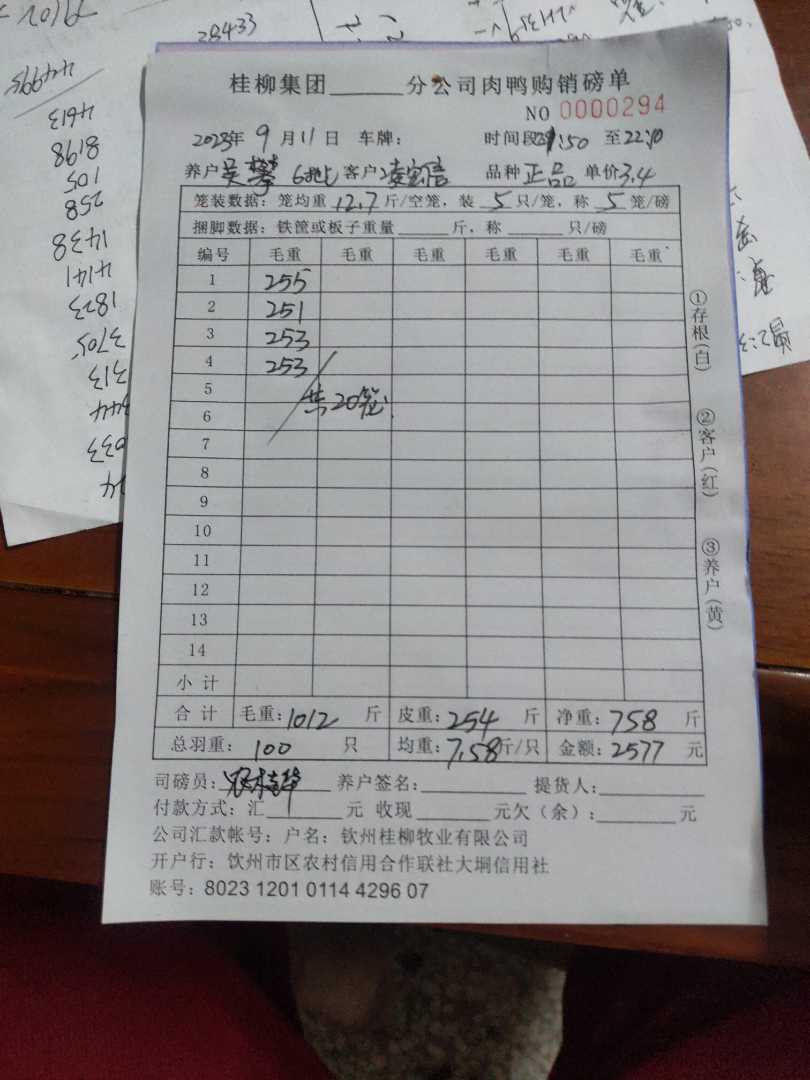 桂柳集团______分公司肉鸭购销磅单
NO 0000294
2023年 9 月 11 日 车牌： 时间段21:50 至22:10
养户 吴攀 客户 品种 正品 单价3.4
笼装数据：笼均重 12.7 斤/空笼，装 5 只/笼，称 5 笼/磅
捆脚数据：铁筐或板子重量______斤，称______只/磅
编号 毛重 毛重 毛重 毛重 毛重 毛重
1 255
2 251
3 253
4 253
5 共20笼
6
7
8
9
10
11
12
13
14
小计
合计 毛重：1012 斤 皮重：254 斤 净重：758 斤
总羽重：100 只 均重：7.58斤/只 金额：2577 元
司磅员： 养户签名：______ 提货人：______
付款方式：汇______元 收现______元欠（余）：______元
公司汇款帐号：户名：钦州桂柳牧业有限公司
开户行：钦州市区农村信用合作联社大垌信用社
账号：8023 1201 0114 4296 07
①存根（白）
②客户（红）
③养户（黄）
28433
44995
4613
8198
105
258
1438
4141
1823
3705
313